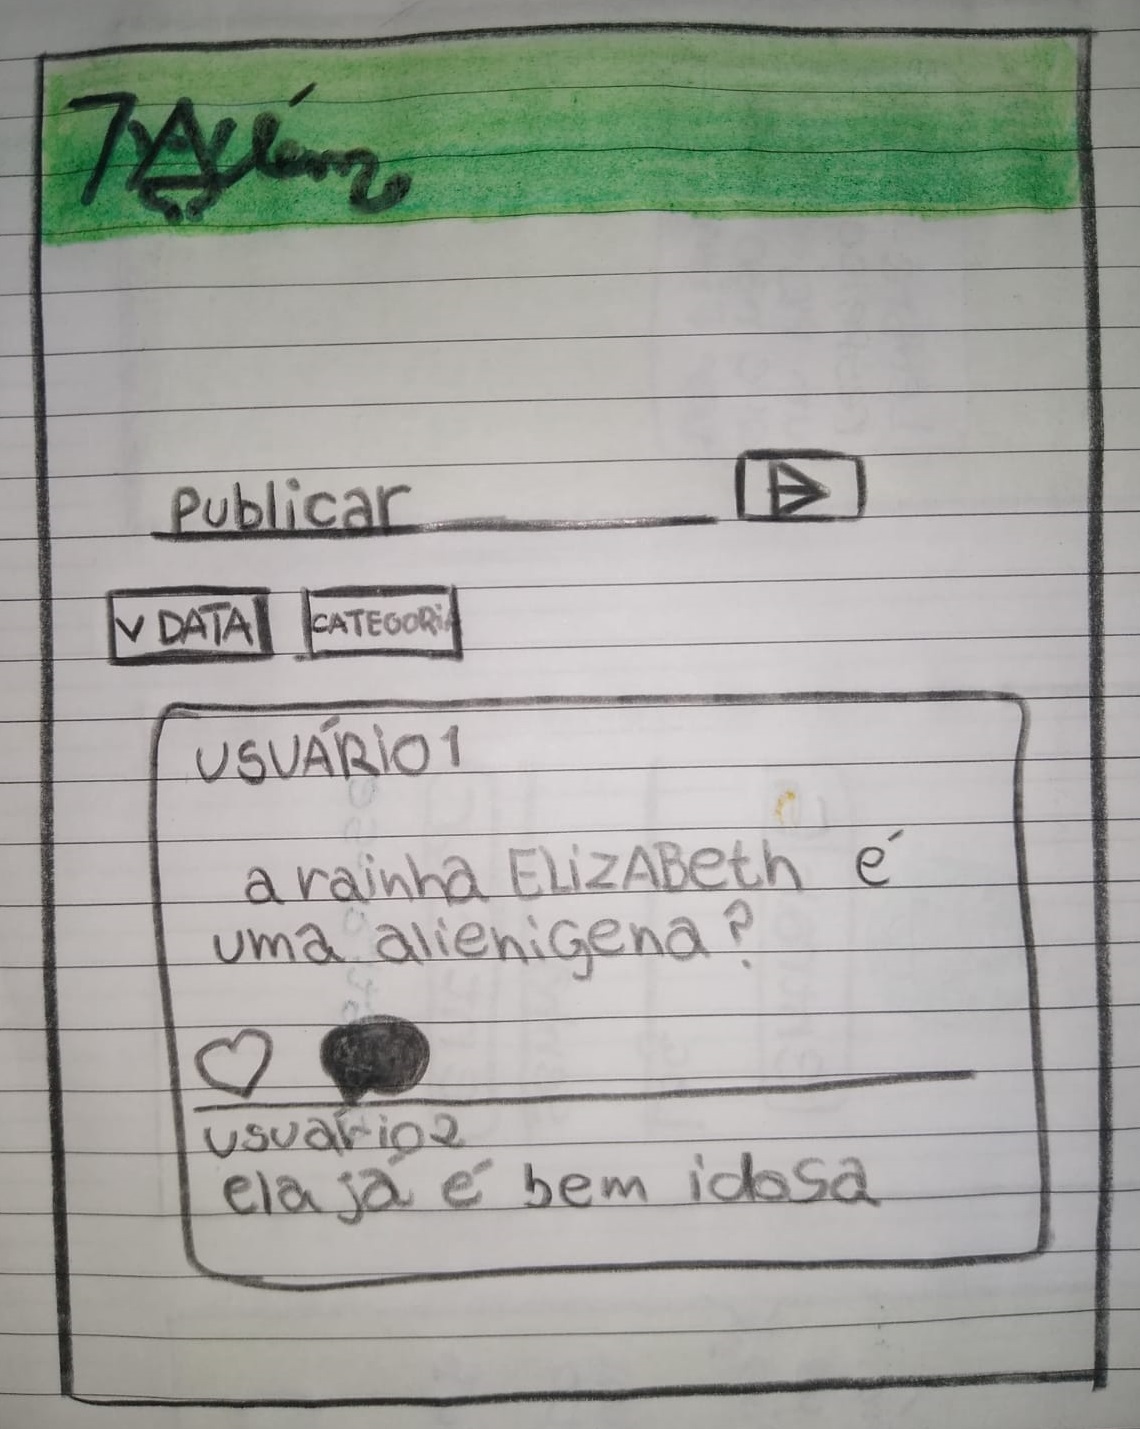 7 Além
Publicar
V DATA
CATEGORIA
USUÁRIO1
a rainha ELiZABeth é
uma alieniGena?
usuário2
ela já é bem idosa